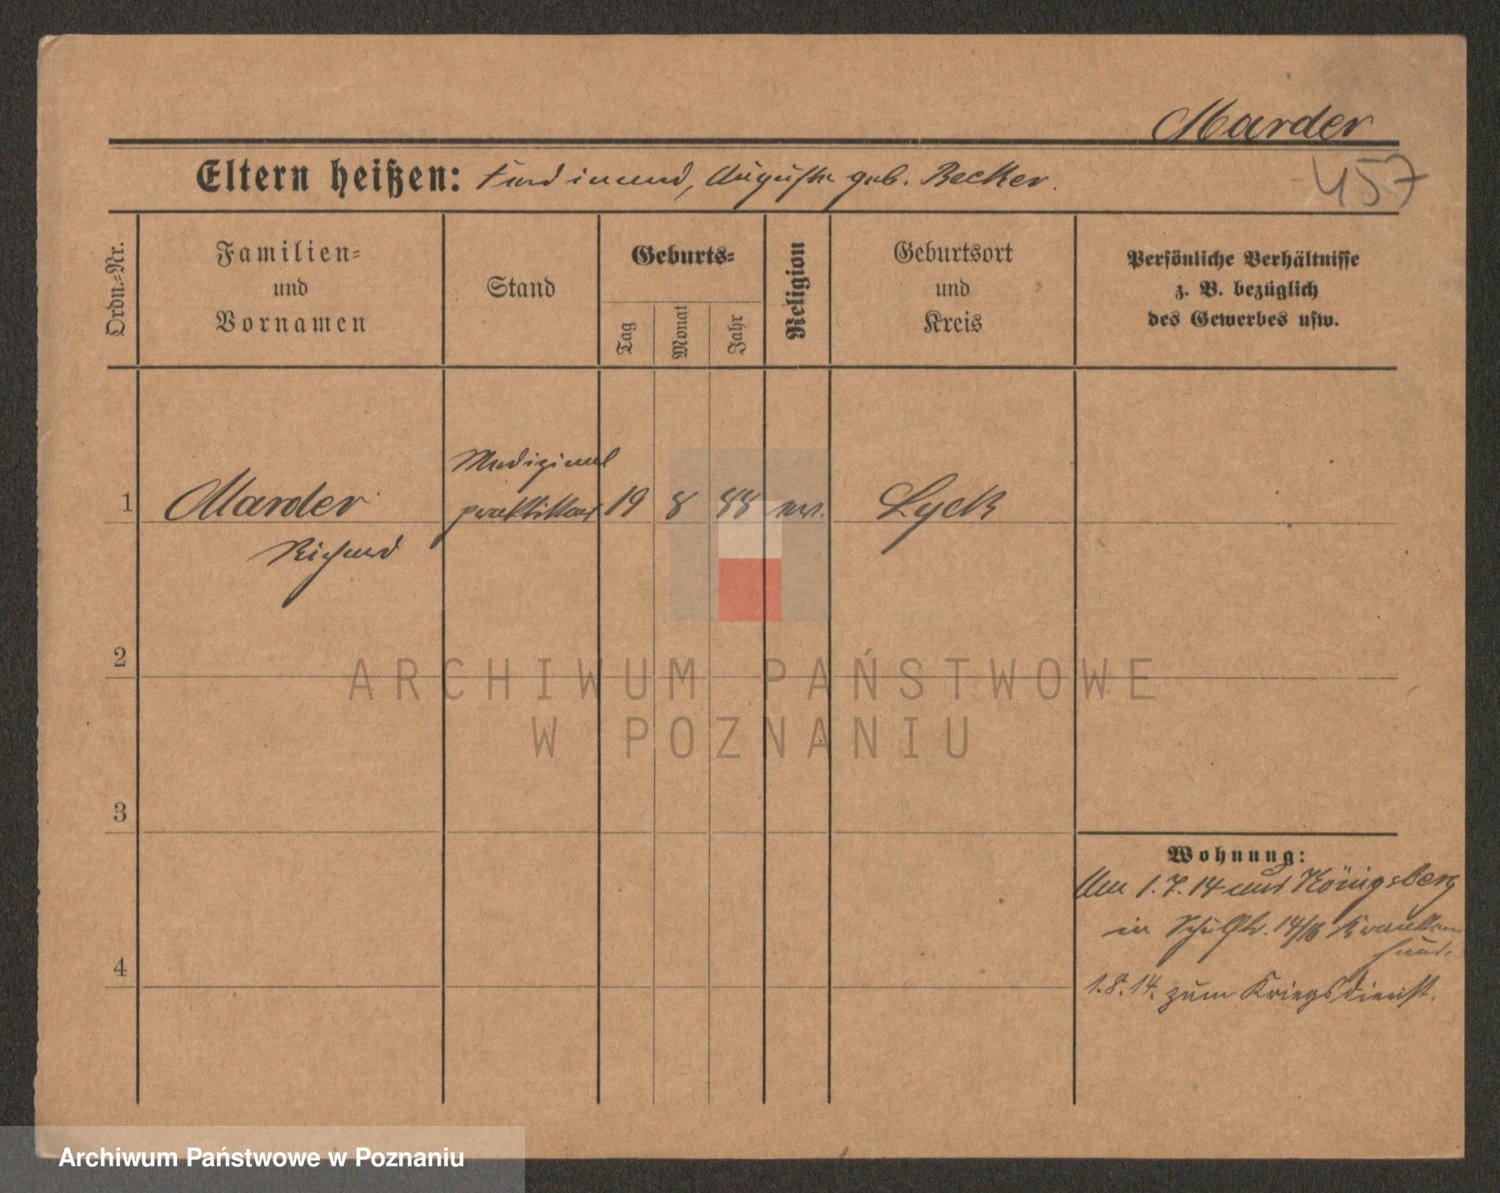 Marder
457
Eltern heißen: Ferdinand, Auguste geb. Becker.
Ordn.-Nr.
Familien-
und
Vornamen
Stand
Geburts-
Tag
Monat
Jahr
Religion
Geburtsort
und
Kreis
Persönliche Verhältnisse
z. B. bezüglich
des Gewerbes usw.
Medizinal
1 Marder praktikant 19 8 88 ev. Lyck
Richard
2
ARCHIWUM PAŃSTWOWE
W POZNANIU
3
4
Wohnung:
Am 1.7.14 aus Königsberg
in 14/16 Kranken
haus.
1.8.14. zum Kriegsdienst.
Archiwum Państwowe w Poznaniu